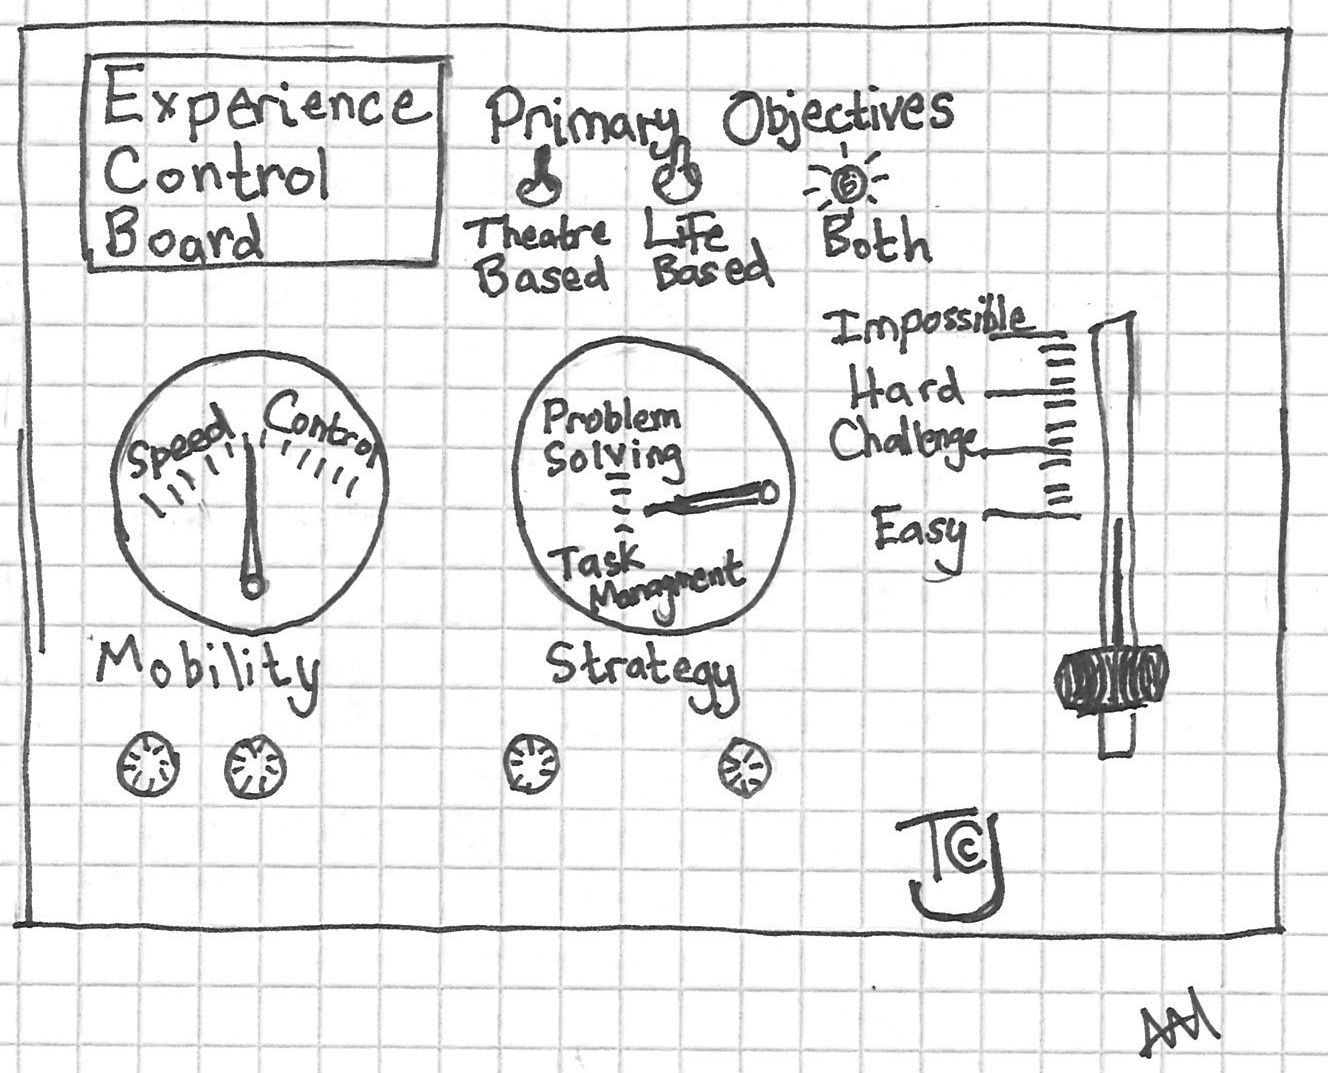 Experience
Control
Board
Primary Objectives
Theatre
Based
Life
Based
Both
Speed
Control
Mobility
Problem
Solving
Task
Managment
Strategy
Impossible
Hard
Challenge
Easy